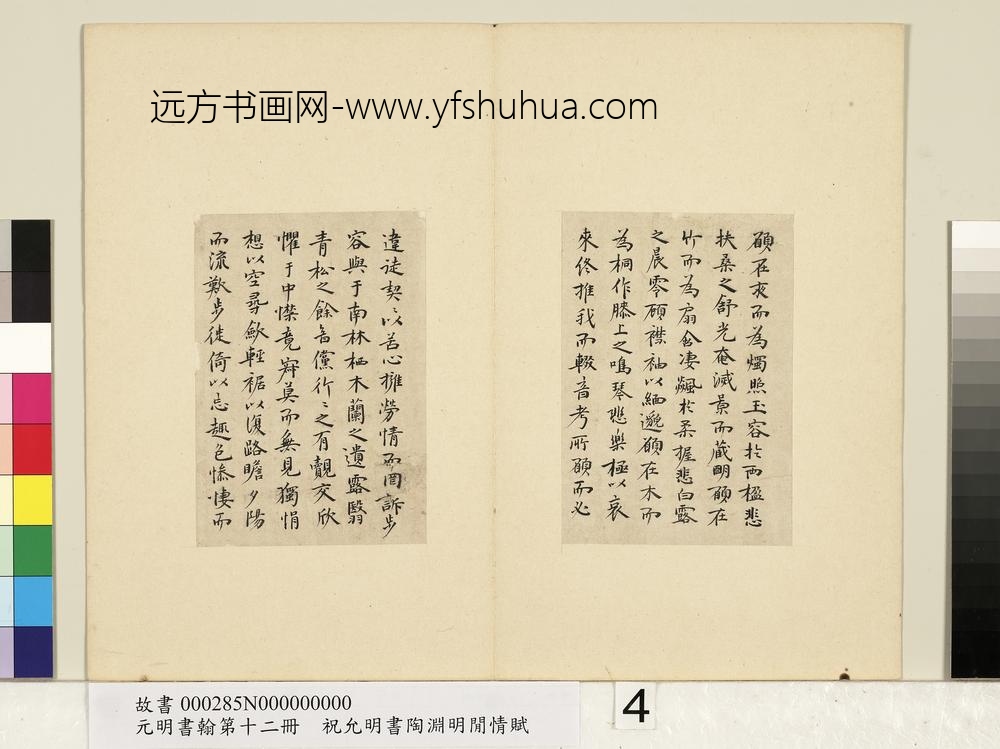 远方书画网-www.yfshuhua.com
願在夜而為燭照玉容於兩楹悲
扶桑之舒光奄滅景而藏明願在
竹而為扇含凄飆於柔握悲白露
之晨零顧襟袖以緬邈願在木而
為桐作膝上之鳴琴悲樂極以哀
來終推我而輟音考所願而必
違徒契〻以苦心擁勞情而罔訴步
容與于南林栖木蘭之遺露翳
青松之餘陰儻行〻之有覿交欣
懼于中襟竟寂莫而無見獨悁
想以空尋斂輕裾以復路瞻夕陽
而流歎步徙倚以忘趣色慘悽而
故書 000285N000000000
元明書翰第十二冊 祝允明書陶淵明閒情賦
4